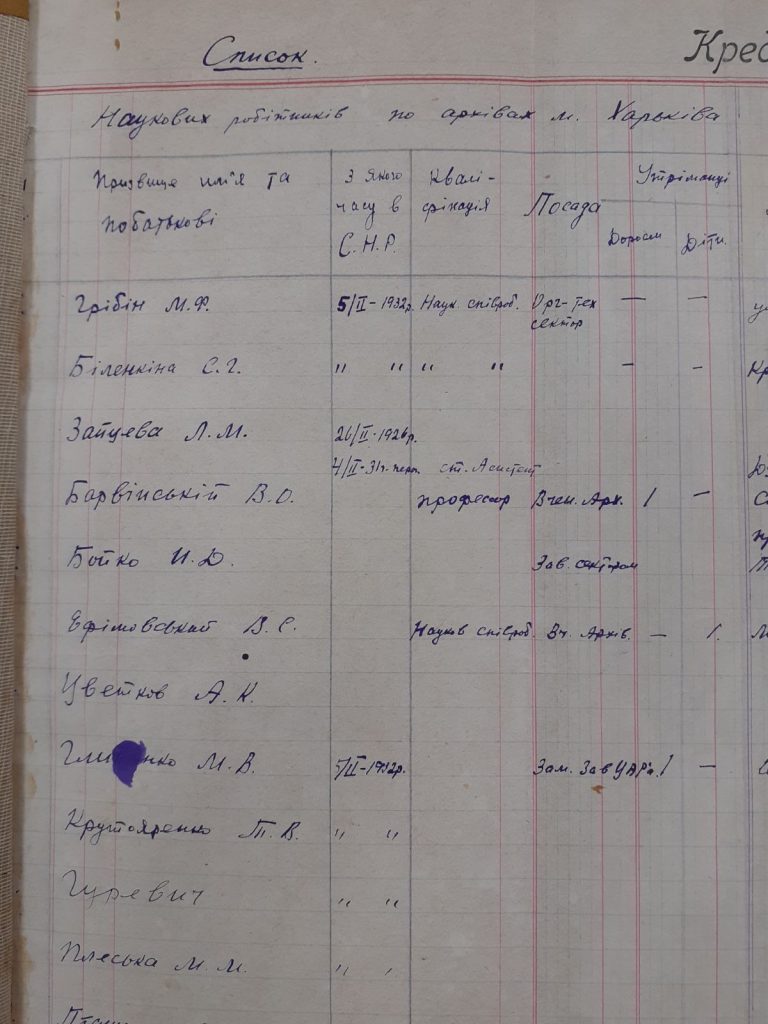 Список.
Кред
Наукових робітників по архівах м. Харьківа
Призвище им'я та побатькові
З якого часу в С.Н.Р.
Квалі-фікація
Посада
Утріманці
Доросл
Діти
Грібін М.Ф. 5/II-1932р. Наук. співроб. Орг-тех сектор — —
Біленкіна С.Г. " " " " - -
Зайцева Л.М. 26/II-1926р.
4/II-31р. ст. Асистент
Барвінській В.О. професор Вчен. Арх. 1 —
Бойко И.Д. Зав. сектором
Ефімовський В.С. Науков співроб. Вч. Архів. — 1.
Цветков А.К.
М.В. 5/II-1932р. Зам. Зав УАР'а. 1 —
Крутояренко Т.В. " "
Гуревич " "
Плеська М.М. " "